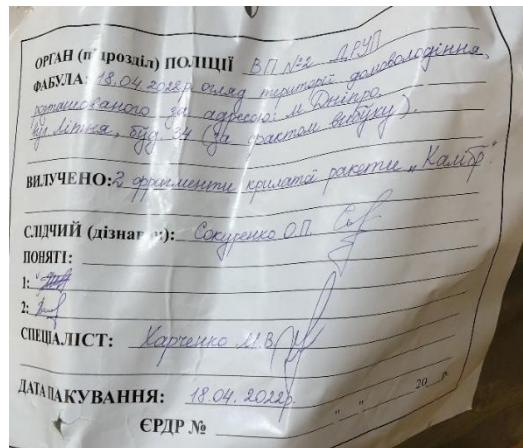 ОРГАН (підрозділ) ПОЛІЦІЇ ВП №2 ДРУП
ФАБУЛА: 18.04.2022р. огляд території домоволодіння,
розташованого за адресою: м. Дніпро,
вул. Літня, буд. 34 (за фактом вибуху).
ВИЛУЧЕНО: 2 фрагменти крилатої ракети „Калібр".
СЛІДЧИЙ (дізнавач): Сокуренко О.П.
ПОНЯТІ:
1:
2:
СПЕЦІАЛІСТ: Харченко М.В.
ДАТА ПАКУВАННЯ: 18.04.2022р. " " 20 р.
ЄРДР №